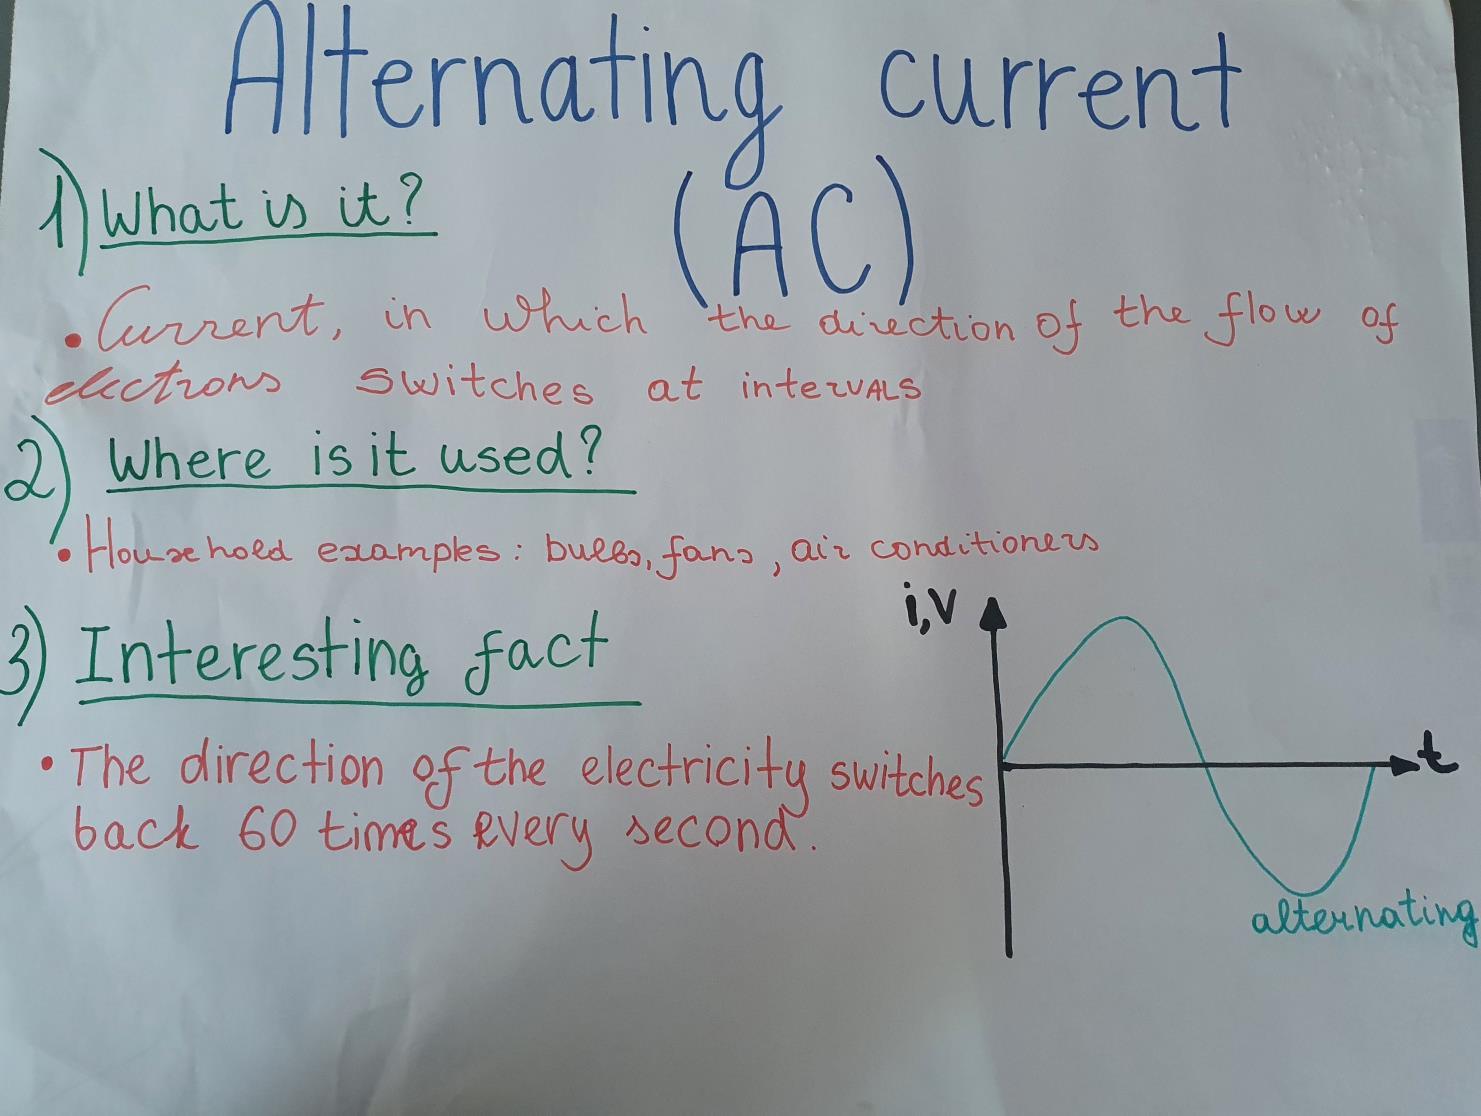 Alternating current
(AC)
1) What is it?
• Current, in which the direction of the flow of
electrons switches at intervals
2) Where is it used?
• Household examples: bulbs, fans, air conditioners
3) Interesting fact
• The direction of the electricity switches
back 60 times every second.
i,V
t
alternating